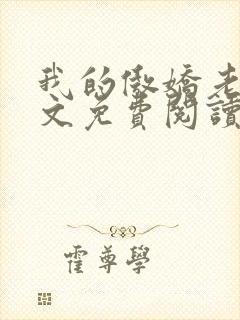 我的傲嬌老
文免費閱讀
霍尊學